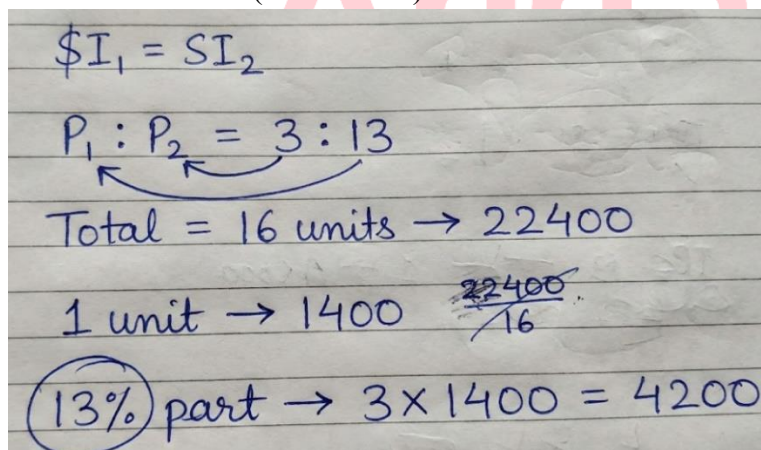 $I₁ = SI₂
P₁ : P₂ = 3 : 13
Total = 16 units → 22400
1 unit → 1400 22400/16
13% part → 3 × 1400 = 4200